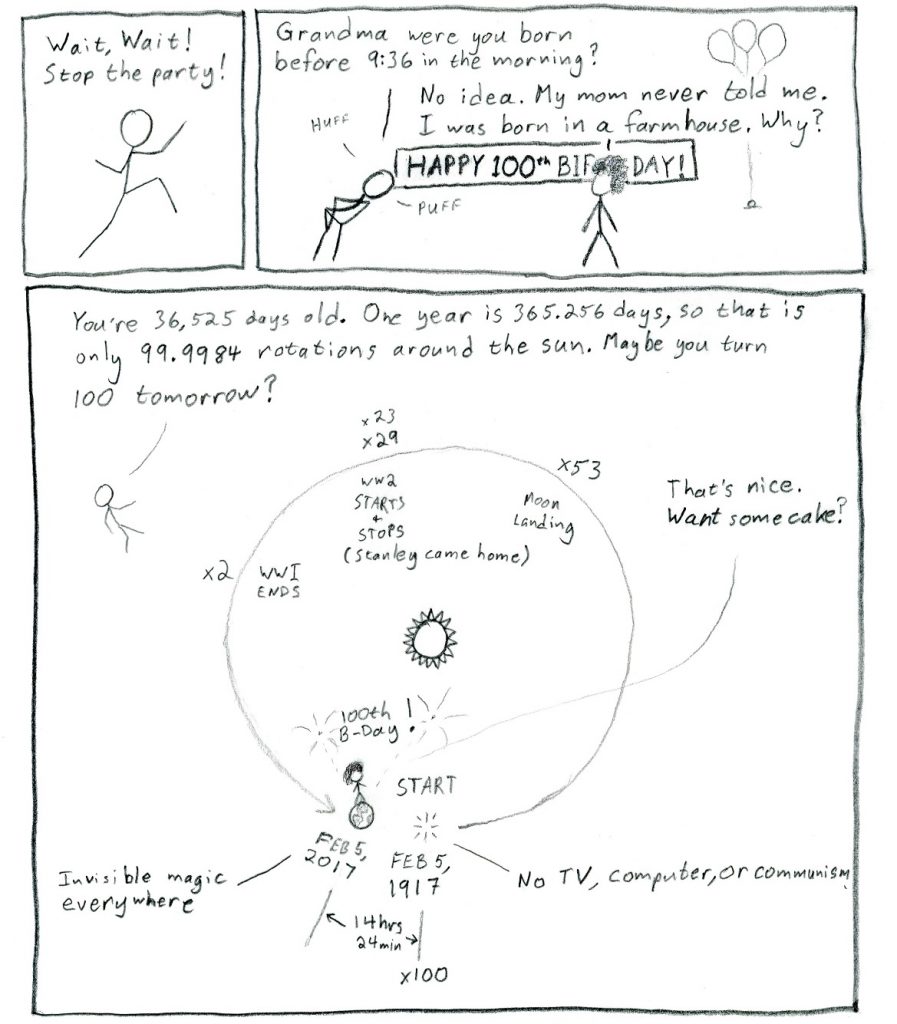 Wait, Wait!
Stop the party!
Grandma were you born
before 9:36 in the morning?
No idea. My mom never told me.
I was born in a farmhouse. Why?
HUFF
HAPPY 100th BIR DAY!
PUFF
You're 36,525 days old. One year is 365.256 days, so that is
only 99.9984 rotations around the sun. Maybe you turn
100 tomorrow?
x23
x29
x53
WW2
STARTS
+
STOPS
(Stanley came home)
Moon
Landing
That's nice.
Want some cake?
x2
WWI
ENDS
100th
B-Day!
START
FEB 5,
2017
FEB 5,
1917
Invisible magic
everywhere
No TV, computer, or communism
14hrs
24min
x100